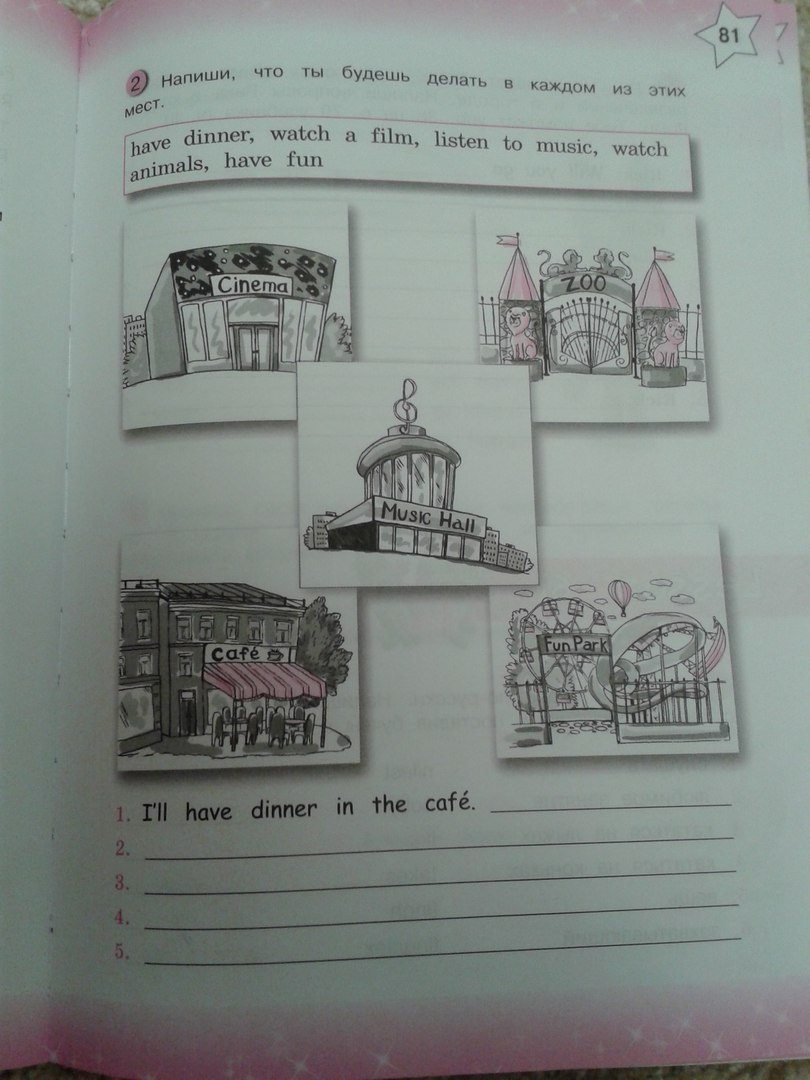 81
2 Напиши, что ты будешь делать в каждом из этих
мест.
have dinner, watch a film, listen to music, watch
animals, have fun
Cinema
ZOO
Music Hall
Café
Fun Park
1. I'll have dinner in the café.
2.
3.
4.
5.